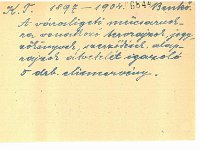 K. T. 1897-1904. Benkő.
A városligeti műcsarnok-
ra vonatkozó tervrajzok, jegy-
zőkönyvek, szerződések, alap-
rajzok átvételét igazoló
5 drb. elismervény.